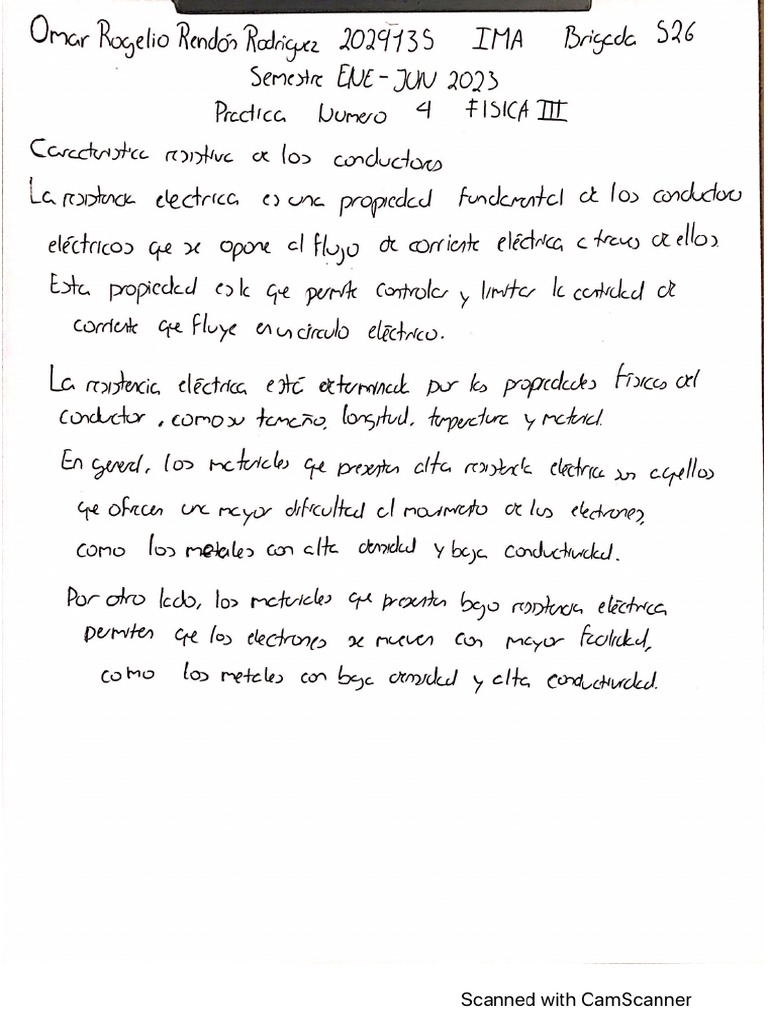 Omar Rogelio Rendón Rodriguez 2029135 IMA Brigada 526
Semestre ENE-JUN 2023
Practica Numero 4 FISICA III
Caracteristica resistiva de los conductores
La resistencia electrica es una propiedad fundamental de los conductores
eléctricos que se opone al flujo de corriente eléctrica a traves de ellos.
Esta propiedad es la que permite controlar y limitar la cantidad de
corriente que fluye en un circulo eléctrico.
La resistencia eléctrica esté determinada por las propiedades físicas del
conductor, como su tamaño, longitud, temperatura y material.
En general, los materiales que presentan alta resistencia electrica son aquellos
que ofrecen una mayor dificultad al movimiento de los electrones,
como los metales con alta densidad y baja conductividad.
Por otro lado, los materiales que presentan bajo resistencia eléctrica
permiten que los electrones se mueven con mayor facilidad,
como los metales con baja densidad y alta conductividad.
Scanned with CamScanner